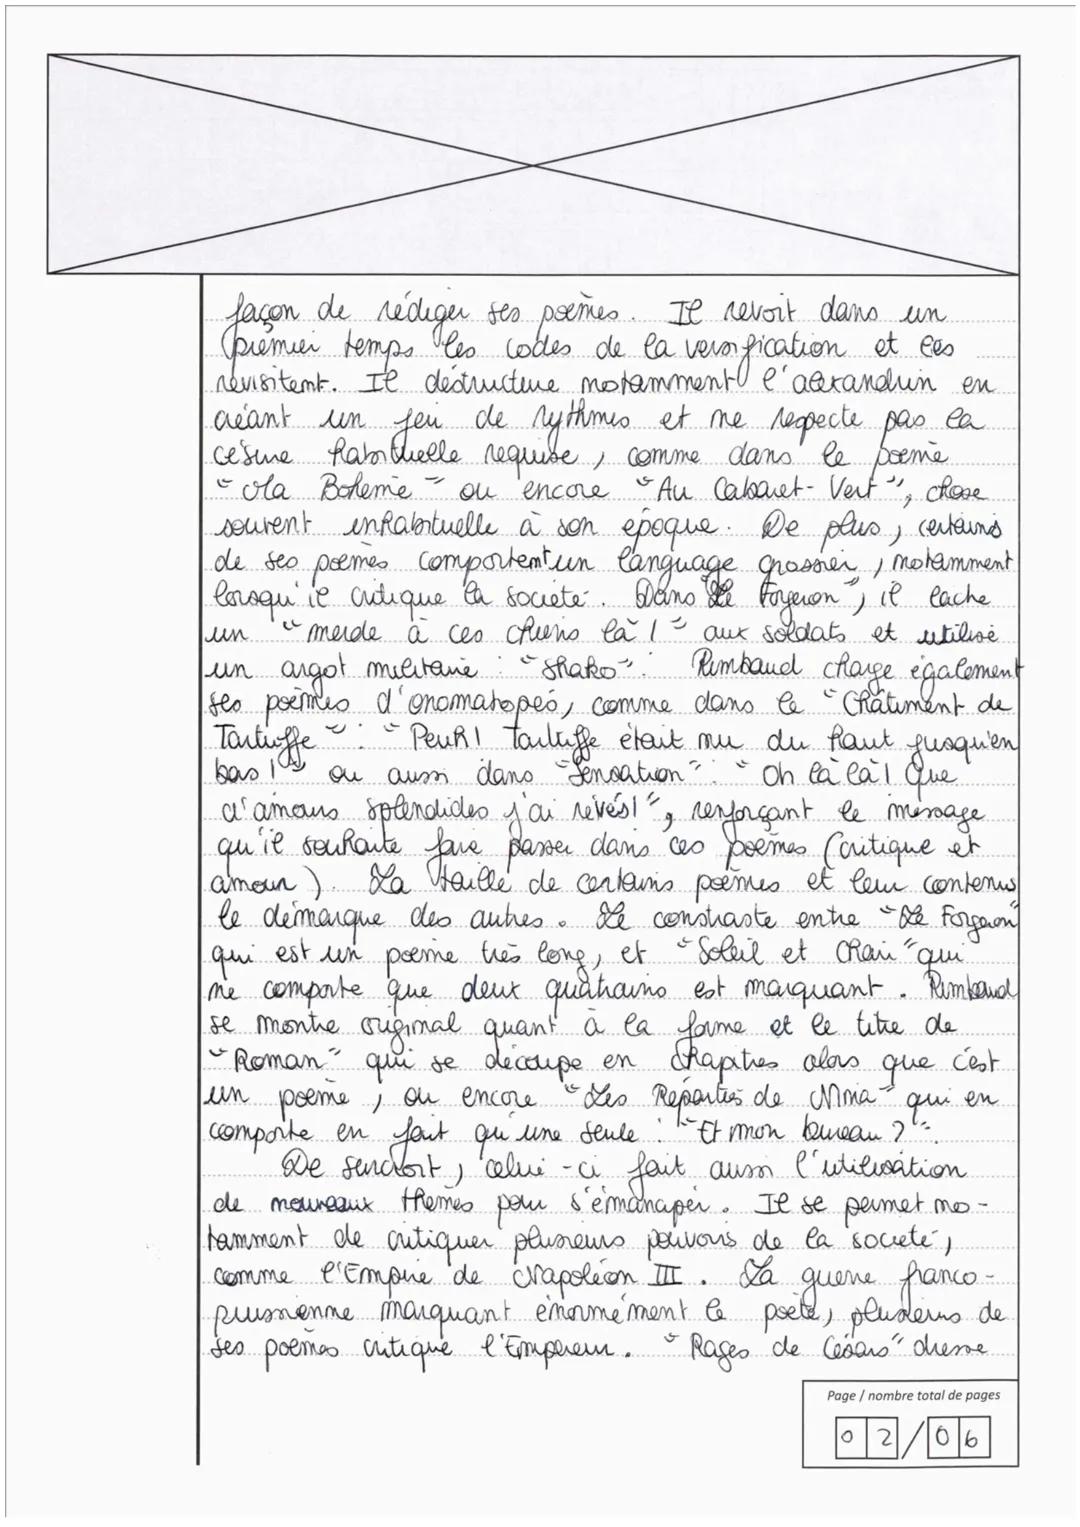 façon de rédiger ses poèmes. Il revoit dans un
premier temps les codes de la versification et les
revisitent. Il déstructure notamment l'alexandrin en
créant un jeu de rythmes et ne respecte pas la
césure habituelle requise, comme dans le poème
"Ma Bohème" ou encore "Au Cabaret-Vert", chose
souvent inhabituelle à son époque. De plus, certains
de ses poèmes comportent un language grossier, notamment
lorsqu'il critique la société. Dans "Le Forgeron", il lache
un "merde à ces chiens là !" aux soldats et utilise
un argot militaire : "shako". Rimbaud charge également
ses poèmes d'onomatopés, comme dans le "Châtiment de
Tartuffe" : "Peuh ! Tartuffe était nu du haut jusqu'en
bas !" ou aussi dans "Sensation" : "Oh là là ! Que
d'amours splendides j'ai rêvés !", renforçant le message
qu'il souhaite faire passer dans ces poèmes (critique et
amour). La taille de certains poèmes et leur contenus
le démarque des autres. Le constraste entre "Le Forgeron"
qui est un poème très long, et "Soleil et Chair" qui
ne comporte que deux quatrains est marquant. Rimbaud
se montre original quant à la forme et le titre de
"Roman" qui se découpe en chapitres alors que c'est
un poème, ou encore "Les Réparties de Nina" qui en
comporte en fait qu'une seule : "Et mon bureau ?".
De surcroît, celui-ci fait aussi l'utilisation
de nouveaux thèmes pour s'émanciper. Il se permet no-
tamment de critiquer plusieurs pouvoirs de la société,
comme l'Empire de Napoléon III. La guerre franco-
prussienne marquant énormément le poète, plusieurs de
ses poèmes critique l'Empereur. "Rages de Césars" dresse
Page / nombre total de pages
02/06